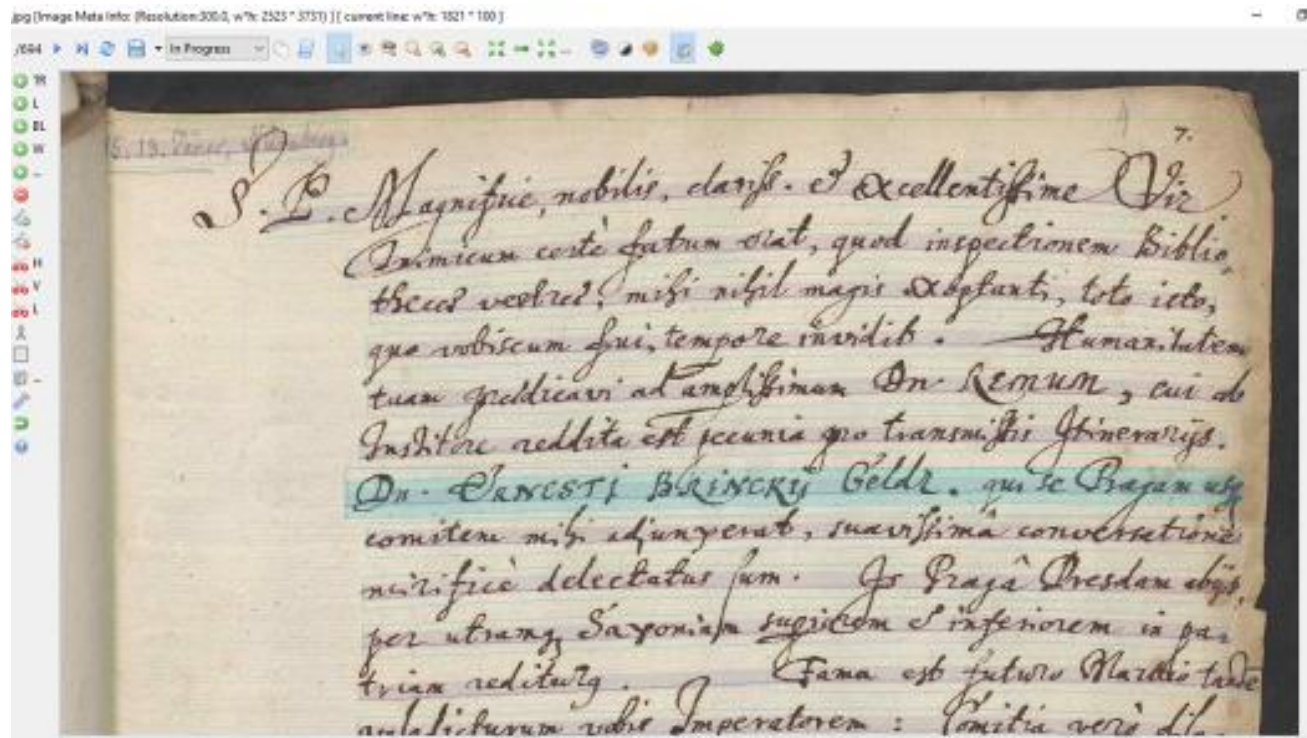 jpg [Image Meta Info: (Resolution:300.0, w*h: 2523 * 3731) ] [ current line: w*h: 1821 * 100 ]
/694 In Progress
TR
L
BL
W
H
V
L
7.
S. P. Magnifice, nobilis, clariss. et excellentissime Vir
Inimicum certè fatum erat, quod inspectionem Biblio,
thecæ vestræ, mihi nihil magis exoptanti, toto isto,
quo vobiscum fui, tempore invidit. Humanitatem
tuam prædicavi ad amplissimum Dn. REMUM, cui ab
Institore reddita est pecunia pro transmissis Itinerarijs.
Dn. ERNESTI BRINCKIJ Geldr. qui se Pragam usq
comitem mihi adjunxerat, suavissimâ conversatione
mirificè delectatus sum. Is Pragâ Dresdam abijt,
per utramq Saxoniam superiorem et inferiorem in pa,
triam rediturq. Fama est futuro Martio tandē
vobis Imperatorem : Comitia verò dila,